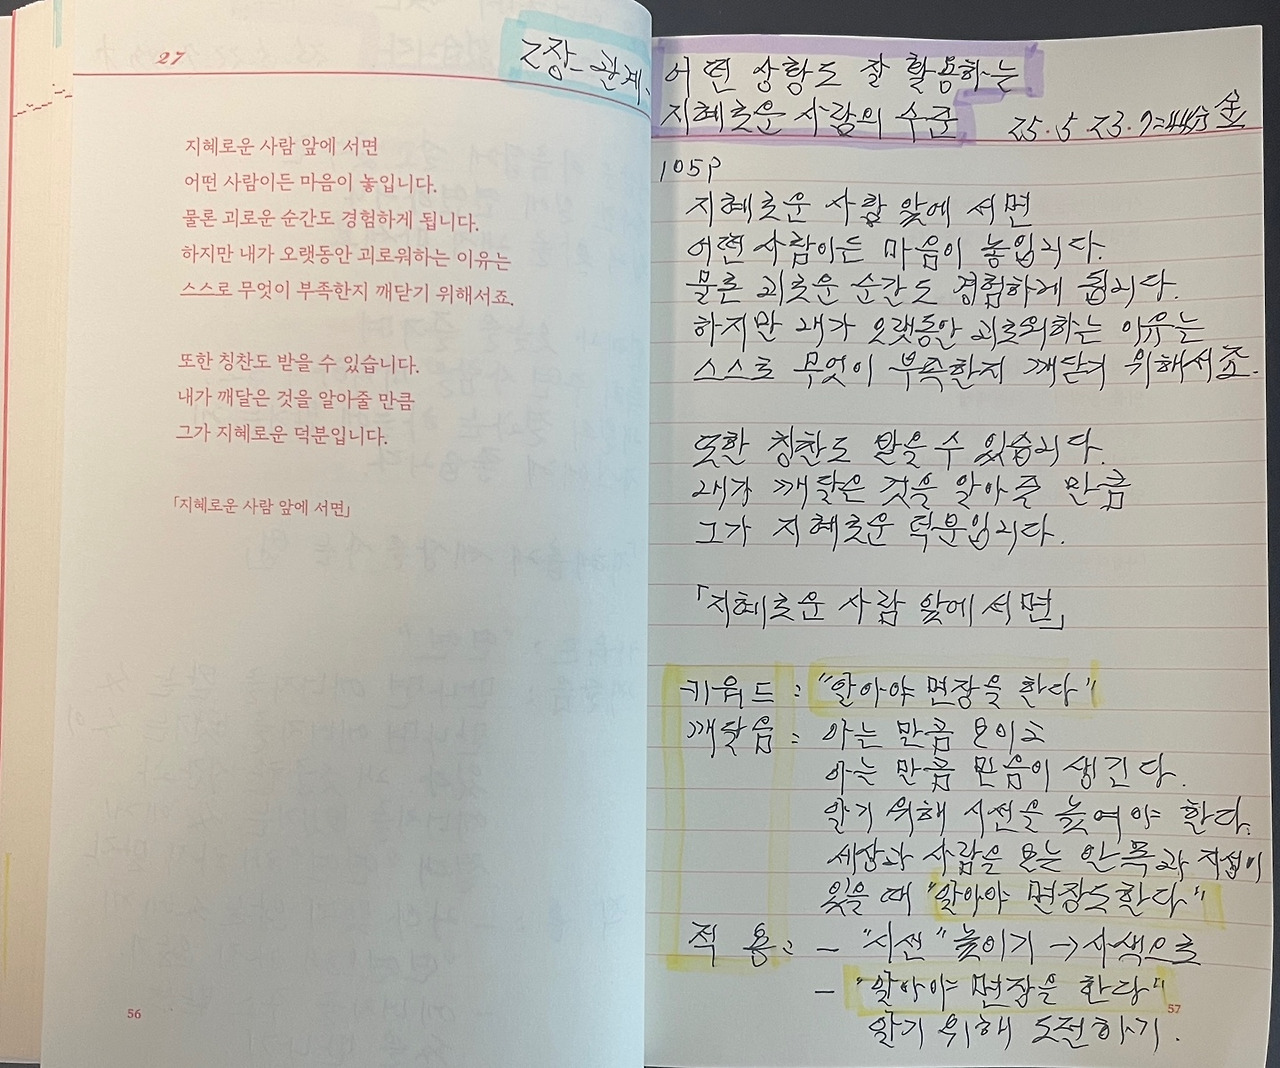 27
2장_관계、
지혜로운 사람 앞에 서면
어떤 사람이든 마음이 놓입니다.
물론 괴로운 순간도 경험하게 됩니다.
하지만 내가 오랫동안 괴로워하는 이유는
스스로 무엇이 부족한지 깨닫기 위해서죠.
또한 칭찬도 받을 수 있습니다.
내가 깨달은 것을 알아줄 만큼
그가 지혜로운 덕분입니다.
「지혜로운 사람 앞에 서면」
56
어떤 상황도 잘 활용하는
지혜로운 사람의 수준 25.5 23.7:44分 金
105P
지혜로운 사람 앞에 서면
어떤 사람이든 마음이 놓입니다.
물론 괴로운 순간도 경험하게 됩니다.
하지만 내가 오랫동안 괴로워하는 이유는
스스로 무엇이 부족한지 깨닫기 위해서죠.
또한 칭찬도 받을 수 있습니다.
내가 깨달은 것을 알아줄 만큼
그가 지혜로운 덕분입니다.
「지혜로운 사람 앞에 서면」
키워드 : "알아야 면장을 한다"
깨달음 : 아는 만큼 보이고
아는 만큼 믿음이 생긴다.
알기 위해 시선을 높여야 한다.
세상과 사람을 보는 안목과 지성이
있을 때 "알아야 면장도한다"
적 용 : - "시선" 높이기 → 사색으로
- "알아야 면장을 한다"
알기 위해 도전하기.
57